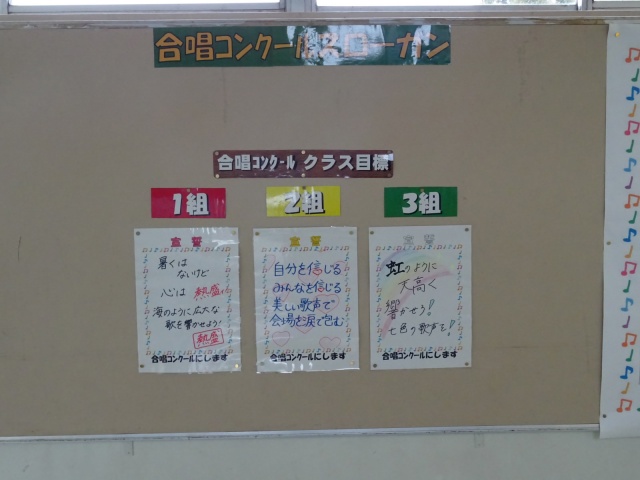 合唱コンクールスローガン
合唱コンクール クラス目標
1組
宣誓
暑くは
ないけど
心は 熱盛に
海のように広大な
歌を響かせよう!
熱盛
合唱コンクールにします
2組
宣誓
自分を信じる
みんなを信じる
美しい歌声で
会場を涙で包む
合唱コンクールにします
3組
宣誓
虹のように
大高く
響かせろ!
七色の歌声を!
合唱コンクールにします